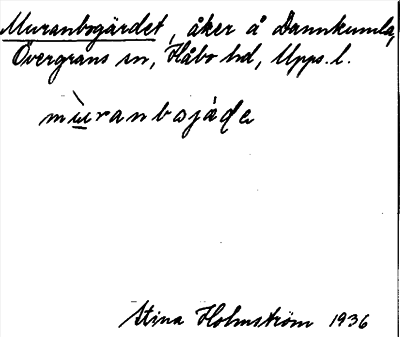 Muranbogärdet, åker å Dannkumla,
Övergrans sn, Håbo hd, Upps. l.
mùranbojäde
Stina Holmström 1936